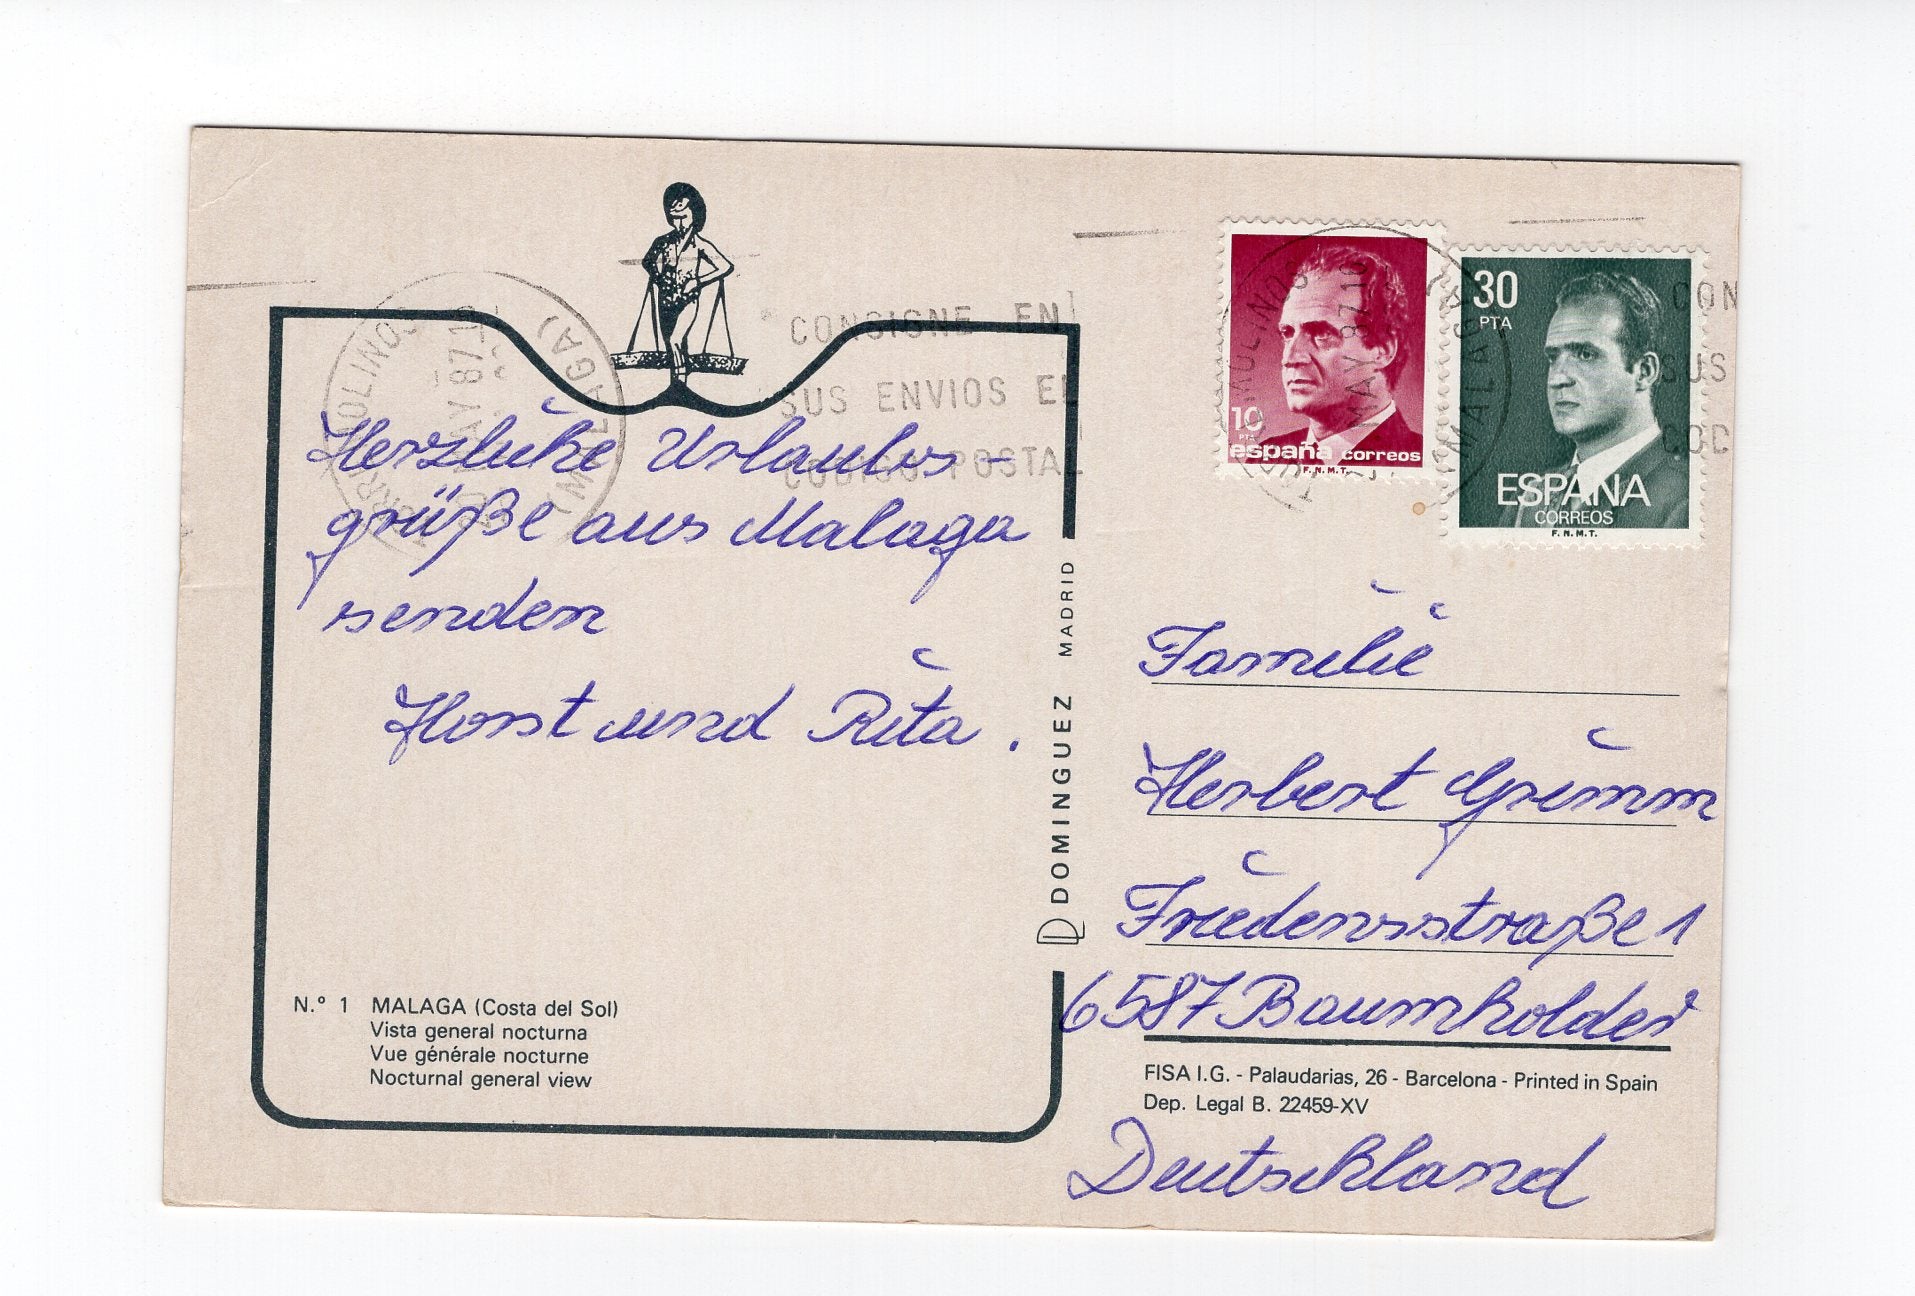 TORREMOLINOS
MAY 87.10
(MALAGA)
CONSIGNE EN
SUS ENVIOS EL
CODIGO POSTAL
Herzliche Urlaubs-
grüße aus Malaga
senden
Horst und Rita.
N.º 1 MALAGA (Costa del Sol)
Vista general nocturna
Vue générale nocturne
Nocturnal general view
DOMINGUEZ MADRID
10
PTA
españa correos
F.N.M.T.
30
PTA
ESPAÑA
CORREOS
F.N.M.T.
TORREMOLINOS
MAY 87.10
(MALAGA)
CON
SUS
COD
Familie
Herbert Grimm
Friedensstraße 1
6587 Baumholder
FISA I.G. - Palaudarias, 26 - Barcelona - Printed in Spain
Dep. Legal B. 22459-XV
Deutschland